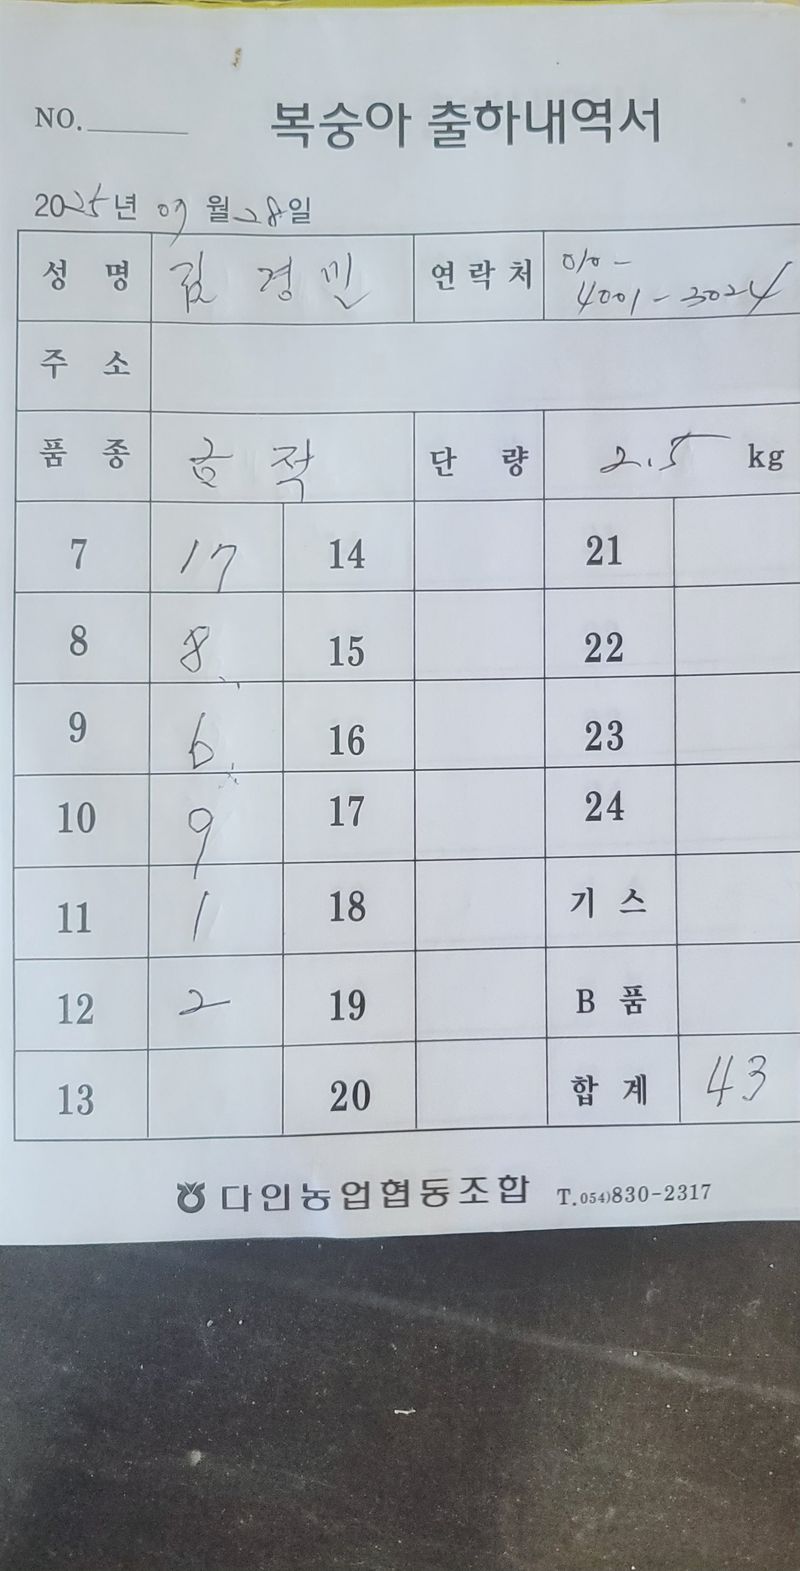 NO. 복숭아 출하내역서
2025년 07월 28일
성 명 김경민 연락처 010-
4001-3024
주 소
품 종 금적 단 량 2.5 kg
7 17 14 21
8 8 15 22
9 6 16 23
10 9 17 24
11 1 18 기 스
12 2 19 B 품
13 20 합 계 43
다인농업협동조합 T.054)830-2317